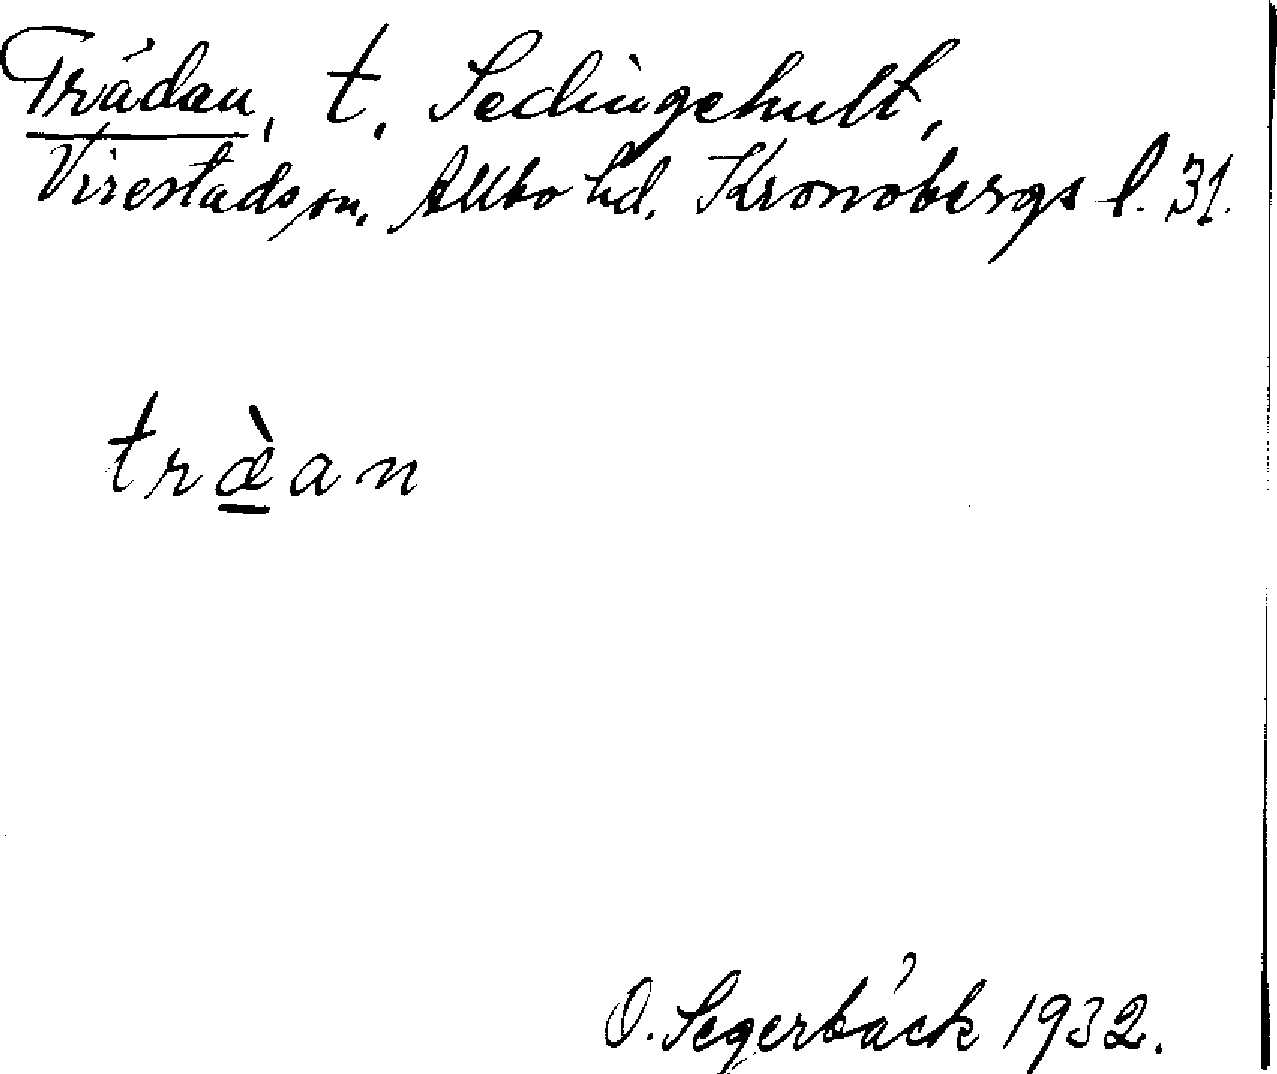 Trädan, t. Sedingehult,
Virestads sn. Allbo hd. Kronobergs l. 31.
træ̠̀an
O. Segerbäck 1932.